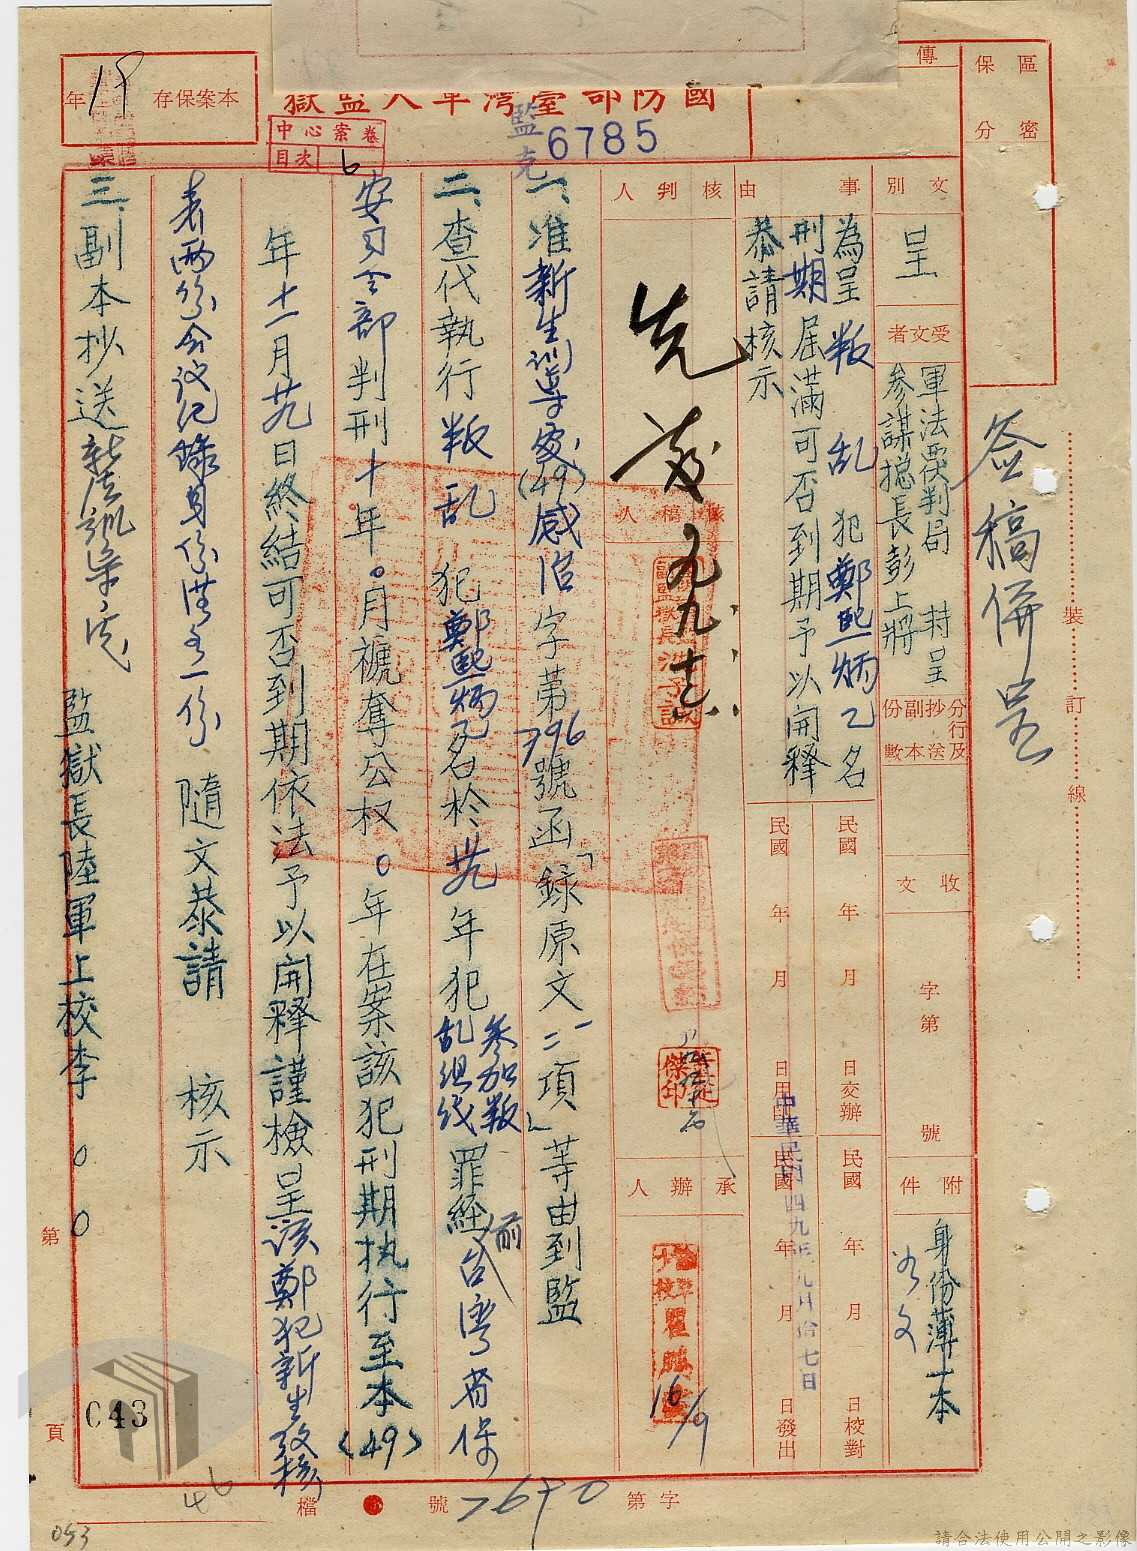 區分
保密
傳
國防部臺灣軍人監獄
本案保存19年
中心案卷
目次 6
監克6785
簽稿併呈
裝訂線
文別
呈
受文者
軍法覆判局 轉呈
參謀總長彭上將
分行及抄送副本份數
收文
字第 號
附件
身份薄一本
如文
事由
為呈叛乱犯鄭熙炳乙名
刑期屆滿可否到期予以開释
恭請核示
民國 年 月 日交辦
民國 年 月 日校對
民國 年 月 日發出
中華民國四九年九月拾七日
核判人
先發
核稿人
承辦人
16/9
一、准新生訓導處(49)感治字第796號函「錄原文一二項」等由到監
二、查代執行叛乱犯鄭熙炳乙名於卅九年犯參加叛乱組织罪經前台灣省保
安司令部判刑十年。月褫奪公权。年在案該犯刑期执行至本(49)
年十一月卅九日終結可否到期依法予以開释謹檢呈該鄭犯新生攷核
表兩份會议纪錄身份簿各一份 隨文恭請 核示
三、副本抄送新生訓導處
監獄長陸軍上校李00
第 頁
043
46
053
檔 號 7690 字第
請合法使用公開之影像